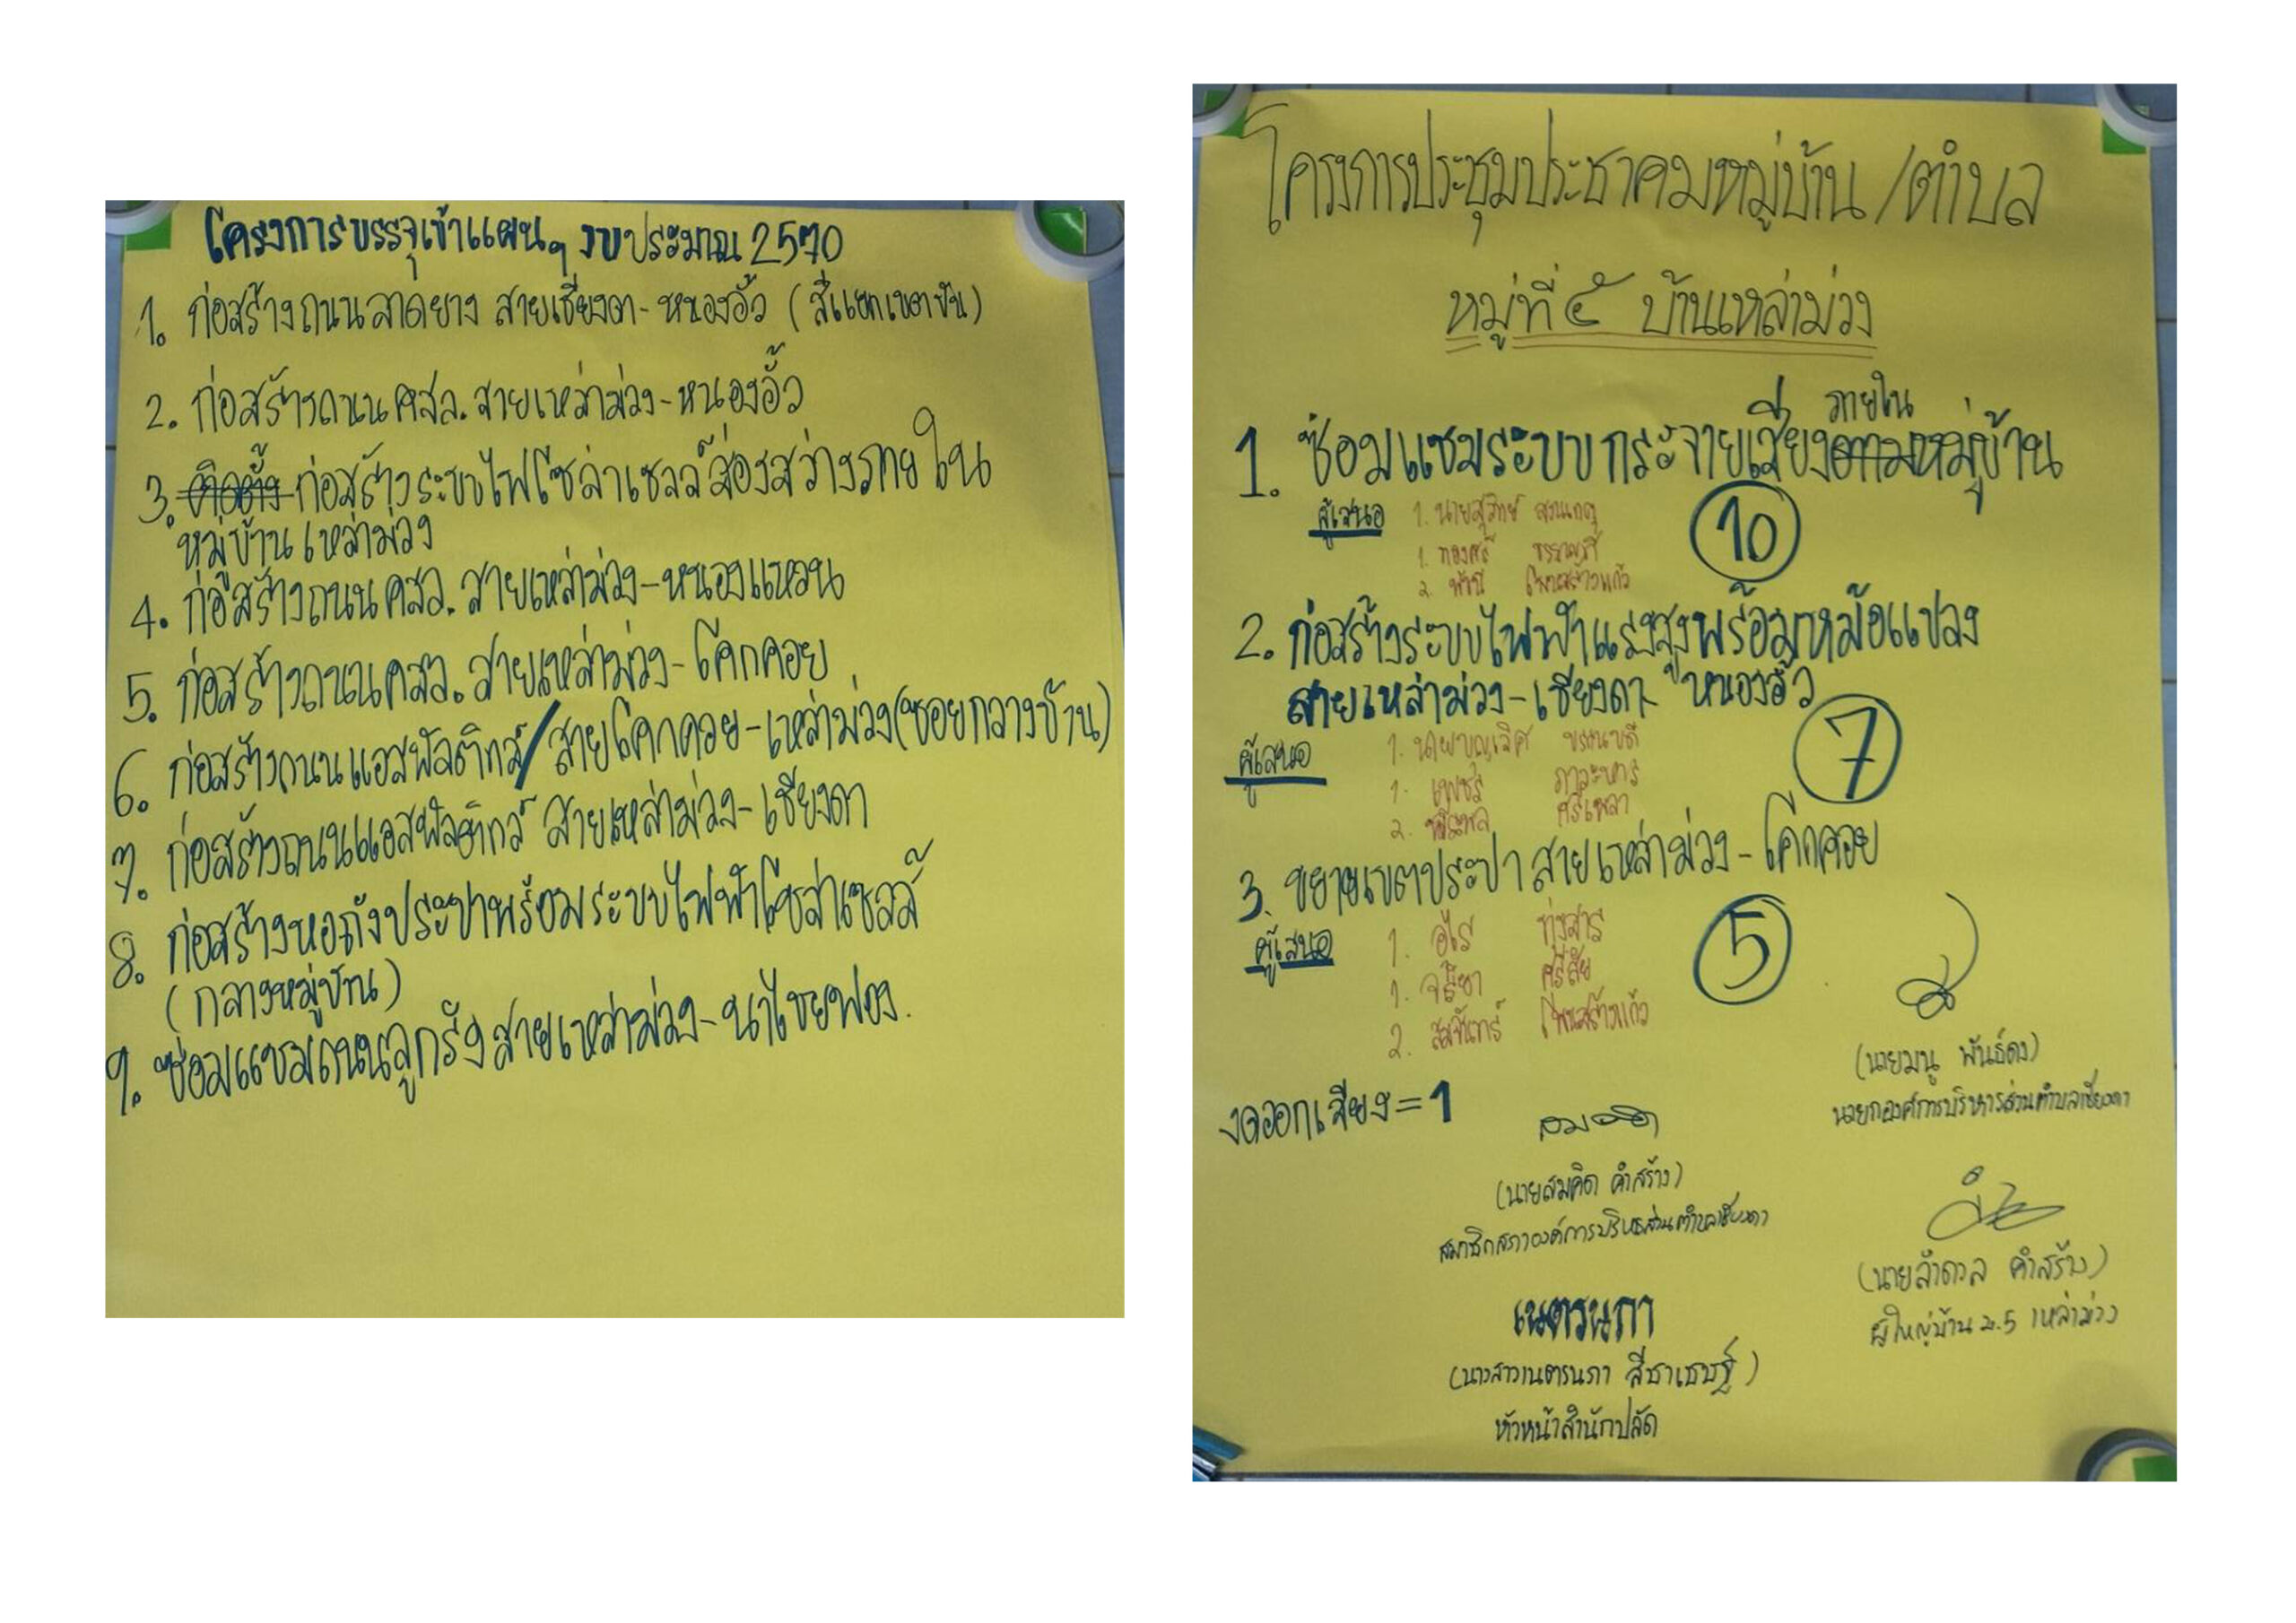 โครงการบรรจุเข้าแผนฯ งบประมาณ 2570
1. ก่อสร้างถนนลาดยาง สายเชียงดา-หนองอั้ว (สี่แยกเขตขัน)
2. ก่อสร้างถนน คสล. สายเหล่าม่วง-หนองอั้ว
3. ติดตั้ง ก่อสร้างระบบไฟโซล่าเซลล์ส่องสว่างภายใน
หมู่บ้านเหล่าม่วง
4. ก่อสร้างถนน คสล. สายเหล่าม่วง-หนองแหวน
5. ก่อสร้างถนน คสล. สายเหล่าม่วง-โคกคอย
6. ก่อสร้างถนนแอสฟัลติกส์/สายโคกคอย-เหล่าม่วง(ซอยกวางบ้าน)
7. ก่อสร้างถนนแอสฟัลติกส์ สายเหล่าม่วง-เชียงดา
8. ก่อสร้างหอถังประปาพร้อมระบบไฟฟ้าโซล่าเซลล์
(กลางหมู่บ้าน)
9. ซ่อมแซมถนนลูกรัง สายเหล่าม่วง-นาไชยฟอง.
โครงการประชุมประชาคมหมู่บ้าน/ตำบล
หมู่ที่ ๕ บ้านเหล่าม่วง
ภายใน
1. ซ่อมแซมระบบกระจายเสียงตามหมู่บ้าน
ผู้เสนอ 1. นายสุวิทย์
10
1. ทองศรี
2. พันี โพนสร้างแก้ว
2. ก่อสร้างระบบไฟฟ้าแรงสูงพร้อมหม้อแปลง
สายเหล่าม่วง-เชียงดา หนองอั้ว
ผู้เสนอ 1. นายบุญเลิศ
7
1. เพชร ภาระหาร
2. ศรีเพลา
3. ขยายเขตประปา สายเหล่าม่วง-โคกคอย
ผู้เสนอ 1. อุไร ทุ่งสาร
5
1. จริยา ศรีลัย
2. สมจันทร์ โพนสร้างแก้ว
(นายมนู พันธ์ดง)
นายกองค์การบริหารส่วนตำบลเชียงดา
งดออกเสียง = 1
(นายสมคิด คำสร้าง)
สมาชิกสภาองค์การบริหารส่วนตำบลเชียงดา
(นายลำดวล คำสร้าง)
ผู้ใหญ่บ้าน ม.5 เหล่าม่วง
เนตรนภา
(นางสาวเนตรนภา สีชาเชษฐ์)
หัวหน้าสำนักปลัด